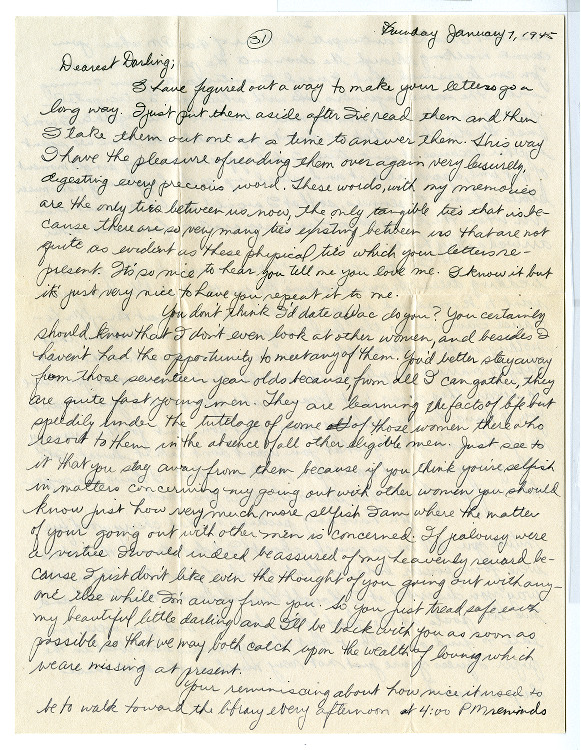 31
Sunday January 7, 1945
Dearest Darling;
I have figured out a way to make your letters go a
long way. I just put them aside after I've read them and then
I take them out one at a time to answer them. This way
I have the pleasure of reading them over again very leisurely,
digesting every precious word. These words, with my memories
are the only ties between us now, the only tangible ties that is be-
cause there are so very many ties existing between us that are not
quite as evident as these physical ties which your letters re-
present. It's so nice to hear you tell me you love me. I know it but
it's just very nice to have you repeat it to me.
You don't think I'd date a Wac do you? You certainly
should know that I don't even look at other women, and besides I
haven't had the opportunity to meet any of them. You'd better stay away
from those seventeen year olds because from all I can gather, they
are quite fast young men. They are learning the facts of life but
speedily under the tutelage of some of those women there who
resort to them in the absence of all other eligible men. Just see to
it that you stay away from them because if you think you're selfish
in matters concerning my going out with other women you should
know just how very much more selfish I am where the matter
of your going out with other men is concerned. If jealousy were
a virtue I would indeed be assured of my heavenly reward be-
cause I just don't like even the thought of you going out with any-
one else while I'm away from you. So you just tread safe
my beautiful little darling and I'll be back with you as soon as
possible so that we may both catch upon the wealth of loving which
we are missing at present.
Your reminiscing about how nice it used to
be to walk toward the library every afternoon at 4:00 PM reminds